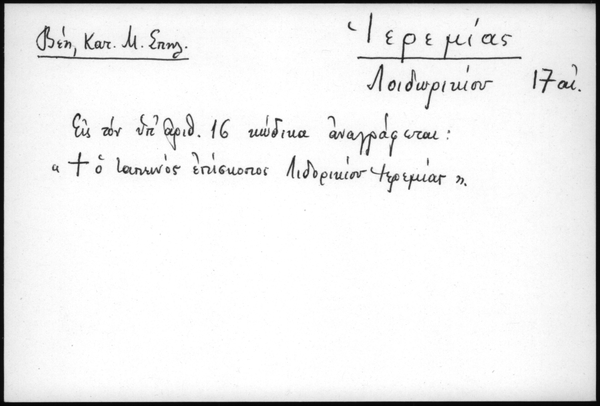 Βέη, Κατ. Μ. Σπηλ.
Ἱερεμίας
Λοιδωρικίου 17 αἰ.
Εἰς τόν ὑπ' ἀριθ. 16 κώδικα ἀναγράφεται:
« + ὁ ταπεινός ἐπίσκοπος Λιδορικίου Ἱερεμίας ».